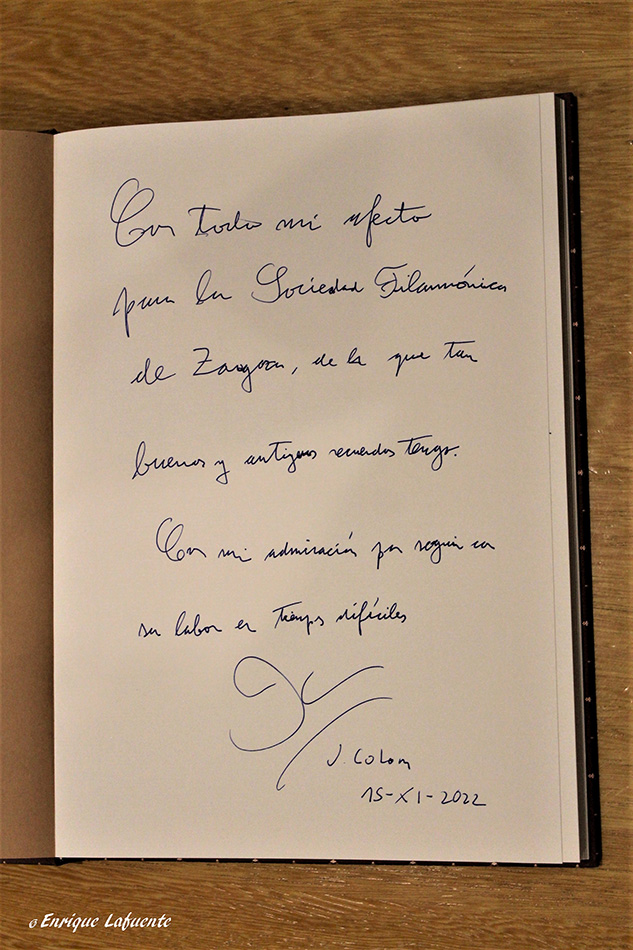 Con todo mi afecto
para la Sociedad Filarmónica
de Zaragoza, de la que tan
buenos y antiguos recuerdos tengo.
Con mi admiración por seguir con
su labor en tiempos difíciles
J. Colom
15-XI-2022
© Enrique Lafuente